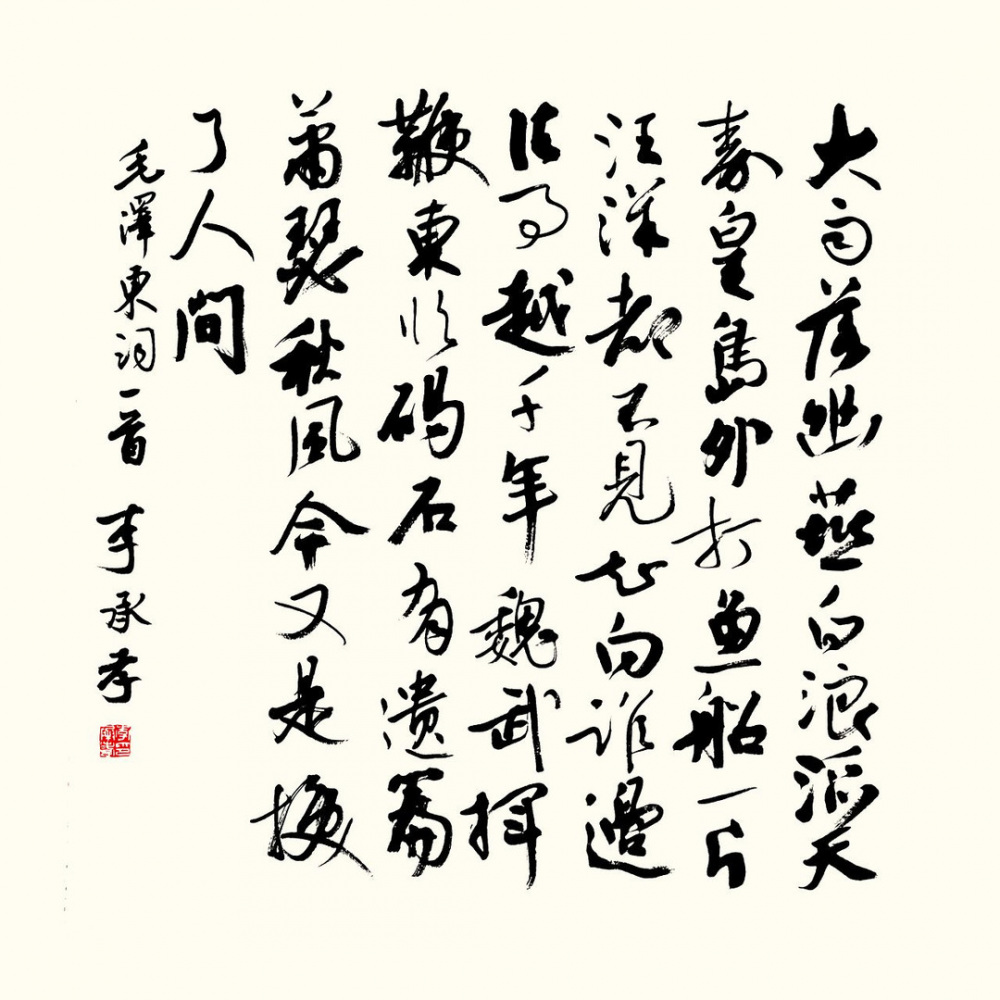 大雨落幽燕白浪滔天
秦皇島外打魚船一片
汪洋都不見知向誰邊
往事越千年魏武揮
鞭東臨碣石有遺篇
蕭瑟秋風今又是換
了人間
毛澤東詞一首 李承孝